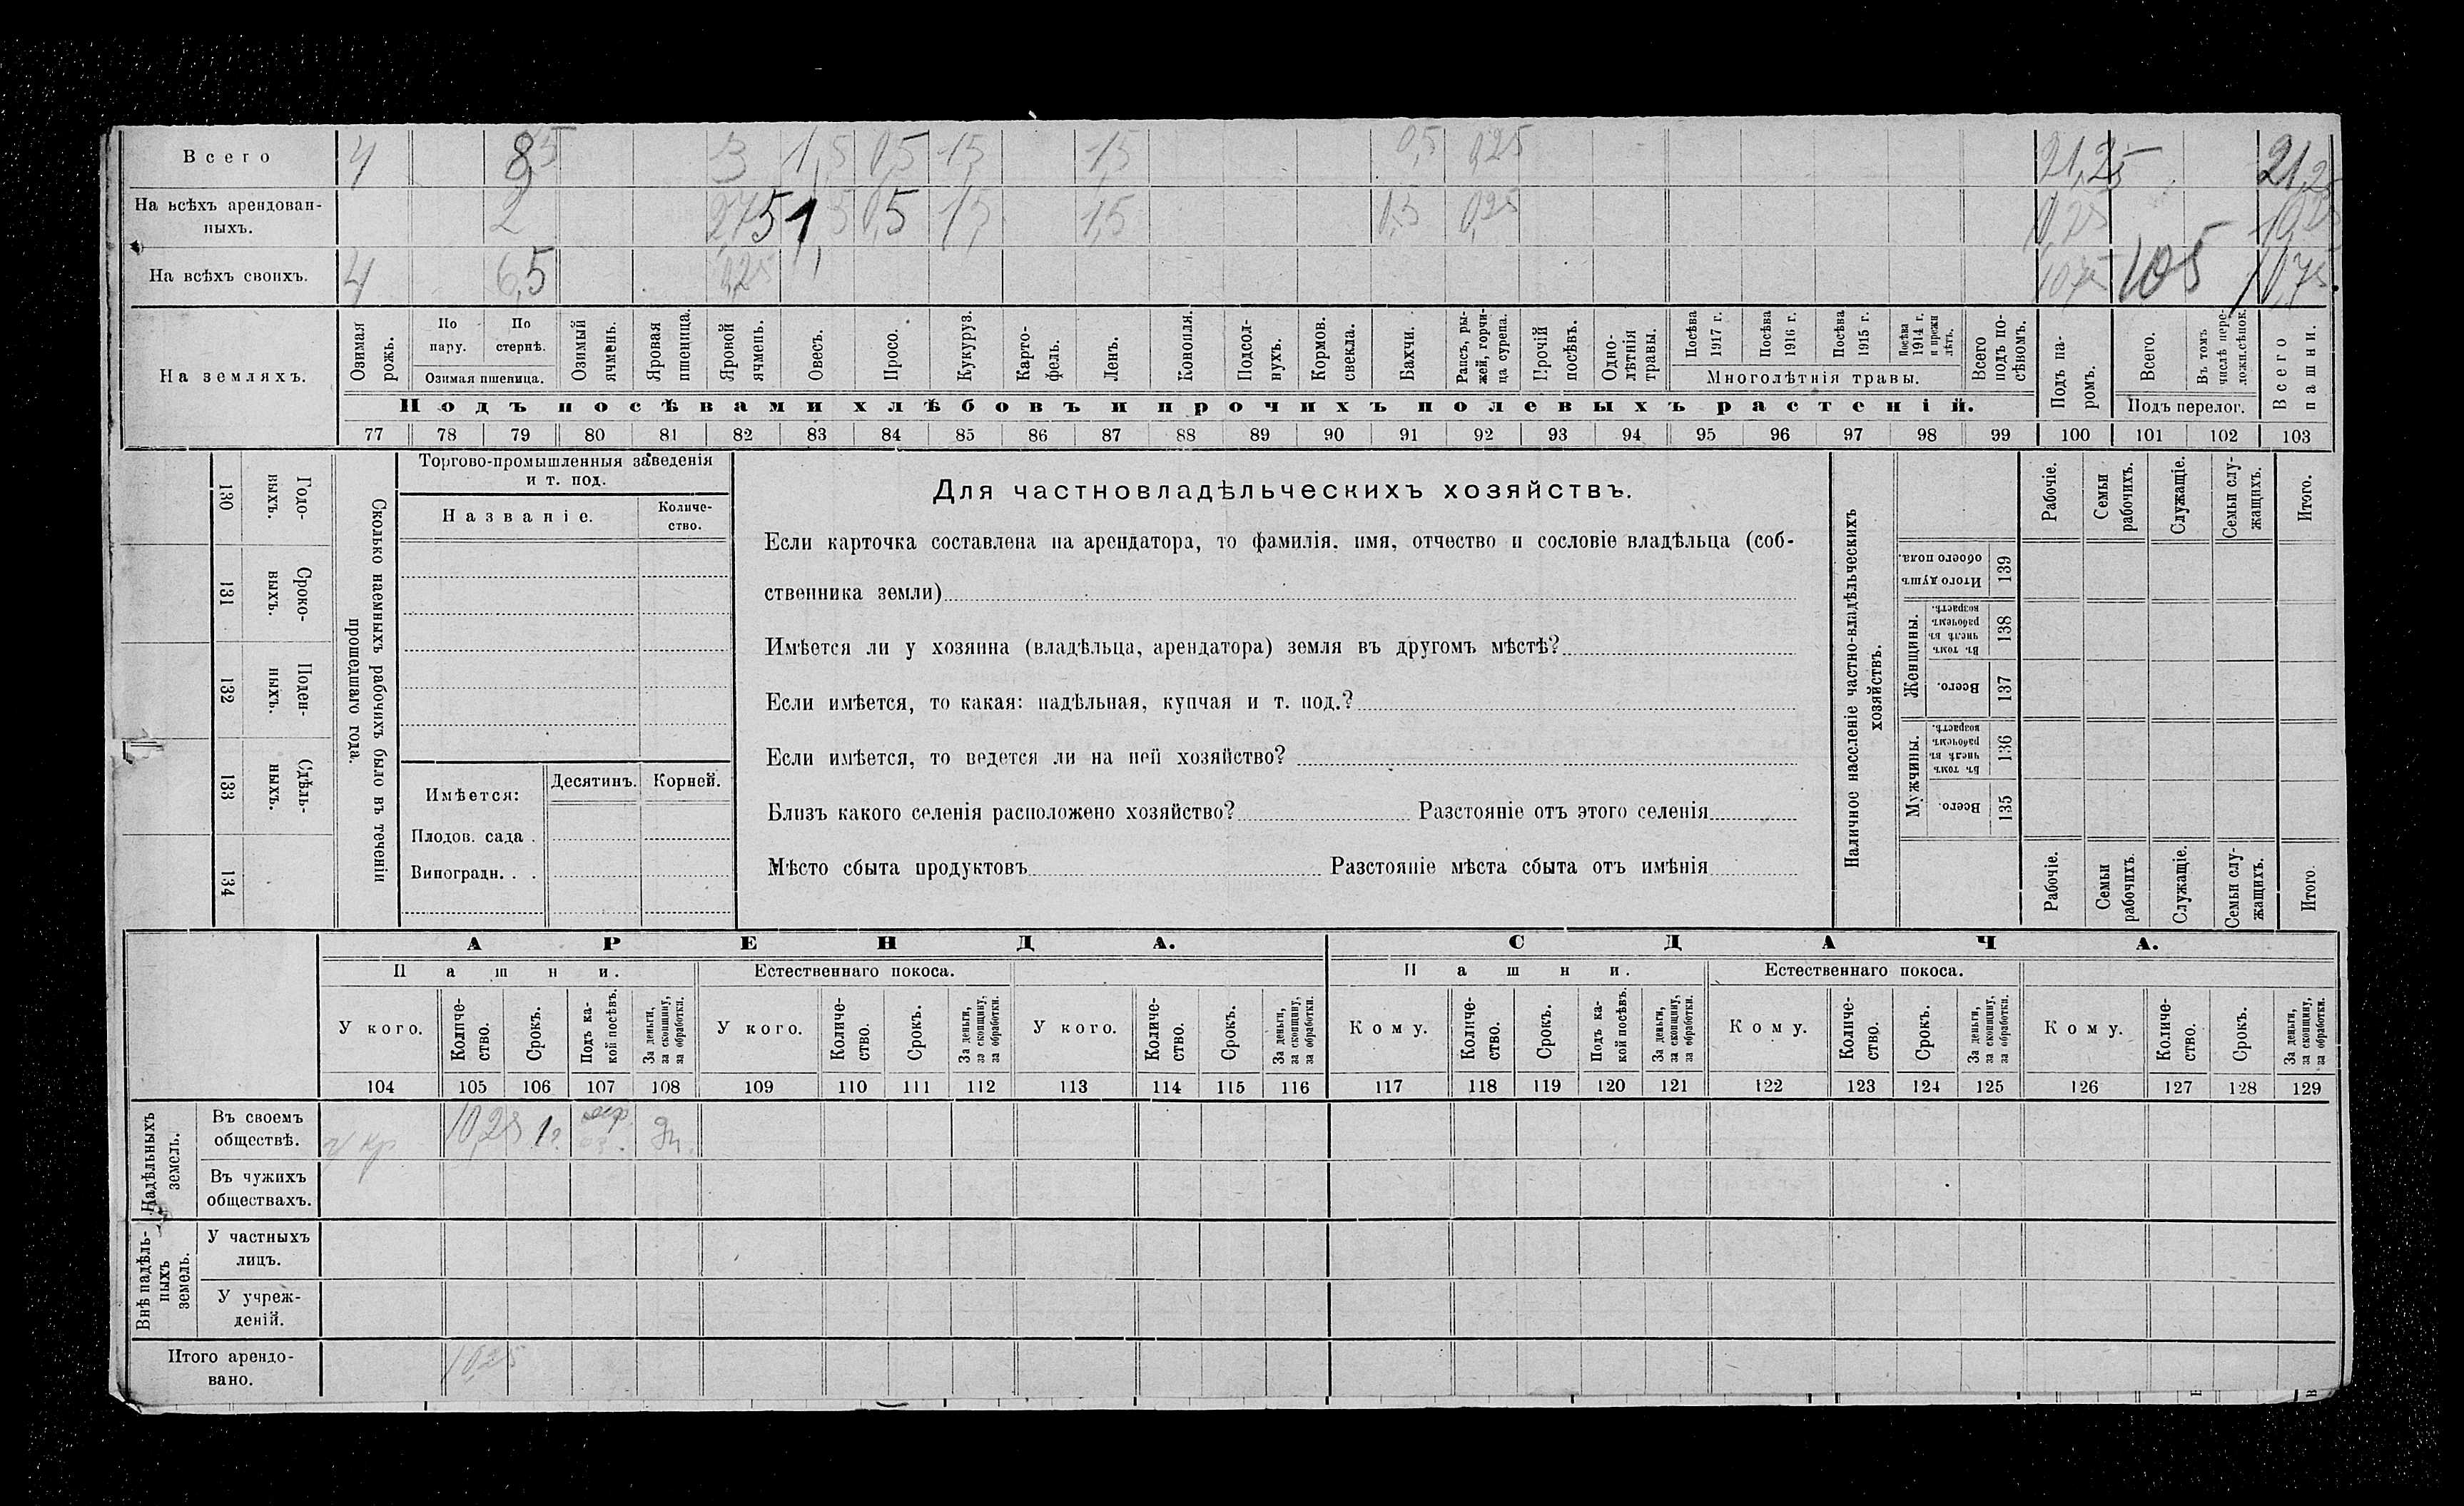 Всего 4 8,5 3 1,5 0,5 1,5 1,5 0,5 0,25 21,25 21,25
На всѣхъ арендован-
ныхъ. 2 2,75 1,5 0,5 1,5 1,5 0,5 0,25
На всѣхъ своихъ. 4 6,5 0,25 10,75 105 10,75
На земляхъ.
Озимая рожь.
По пару.
По стернѣ.
Озимая пшеница.
Озимый ячмень.
Яровая пшеница.
Яровой ячмень.
Овесъ.
Просо.
Кукуруз.
Карто-
фель.
Ленъ.
Конопля.
Подсол-
нухъ.
Кормов. свекла.
Бахчи.
Рапсъ, ры-
жей, горчи-
ца сурепа.
Прочій посѣвъ.
Одно-
лѣтнія травы.
Посѣва 1917 г.
Посѣва 1916 г.
Посѣва 1915 г.
Посѣва 1914 г. и прежн лѣтъ.
Многолѣтнія травы.
Всего подъ по-
сѣвомъ.
Подъ па-
ромъ.
Всего.
Въ томъ числѣ пере-
ложн.сѣнок.
Подъ перелог.
Всего пашни.
Подъ посѣвами хлѣбовъ и прочихъ полевыхъ растеній.
77 78 79 80 81 82 83 84 85 86 87 88 89 90 91 92 93 94 95 96 97 98 99 100 101 102 103
130 Годо-
выхъ.
131 Сроко-
выхъ.
132 Поден-
ныхъ.
133 Сдѣль-
ныхъ.
134
Сколько наемныхъ рабочихъ было въ теченіи
прошедшаго года.
Торгово-промышленныя заведенія
и т. под.
Названіе.
Количе-
ство.
Имѣется: Десятинъ. Корней.
Плодов. сада .
Виноградн. . .
Для частновладѣльческихъ хозяйствъ.
Если карточка составлена на арендатора, то фамилія, имя, отчество и сословіе владѣльца (соб-
ственника земли)
Имѣется ли у хозяина (владѣльца, арендатора) земля въ другомъ мѣстѣ?
Если имѣется, то какая: надѣльная, купчая и т. под.?
Если имѣется, то ведется ли на ней хозяйство?
Близъ какого селенія расположено хозяйство? Разстояніе отъ этого селенія
Мѣсто сбыта продуктовъ Разстояніе мѣста сбыта отъ имѣнія
Наличное населеніе частно-владѣльческихъ
хозяйствъ.
Рабочіе.
Семьи рабочихъ.
Служащіе.
Семьи слу-
жащихъ.
Итого.
Итого душъ обоего пола. 139
Женщины.
Въ томъ числѣ въ рабочемъ возрастѣ. 138
Всего. 137
Мужчины.
Въ томъ числѣ въ рабочемъ возрастѣ. 136
Всего. 135
Рабочіе.
Семьи рабочихъ.
Служащіе.
Семьи слу-
жащихъ.
Итого.
АРЕНДА. СДАЧА.
Пашни. Естественнаго покоса. Пашни. Естественнаго покоса.
У кого.
Количе-
ство.
Срокъ.
Подъ ка-
кой посѣвъ.
За деньги, за скопщину, за обработки.
У кого.
Количе-
ство.
Срокъ.
За деньги, за скопщину, за обработки.
У кого.
Количе-
ство.
Срокъ.
За деньги, за скопщину, за обработки.
Кому.
Количе-
ство.
Срокъ.
Подъ ка-
кой посѣвъ.
За деньги, за скопщину, за обработки.
Кому.
Количе-
ство.
Срокъ.
За деньги, за скопщину, за обработки.
Кому.
Количе-
ство.
Срокъ.
За деньги, за скопщину, за обработки.
104 105 106 107 108 109 110 111 112 113 114 115 116 117 118 119 120 121 122 123 124 125 126 127 128 129
Надѣльныхъ земель.
Въ своемъ
обществѣ. у кр 10,25 1 г.
Въ чужихъ
обществахъ.
Внѣ надѣль-
ныхъ земель.
У частныхъ
лицъ.
У учреж-
деній.
Итого арендо-
вано. 10,25